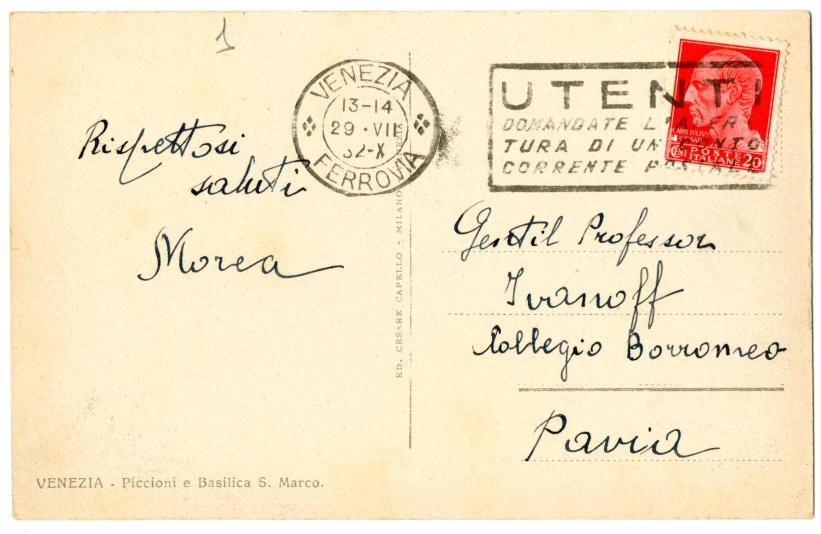 1
Rispettosi
saluti
Morea
VENEZIA - Piccioni e Basilica S. Marco.
ED. CESARE CAPELLO - MILANO
VENEZIA
13-14
29·VII
32-X
FERROVIA
UTENTI
DOMANDATE L'APER
TURA DI UN CONTO
CORRENTE POSTALE
POSTE
CENT ITALIANE 20
Gentil Professor
Ivanoff
Collegio Borromeo
Pavia